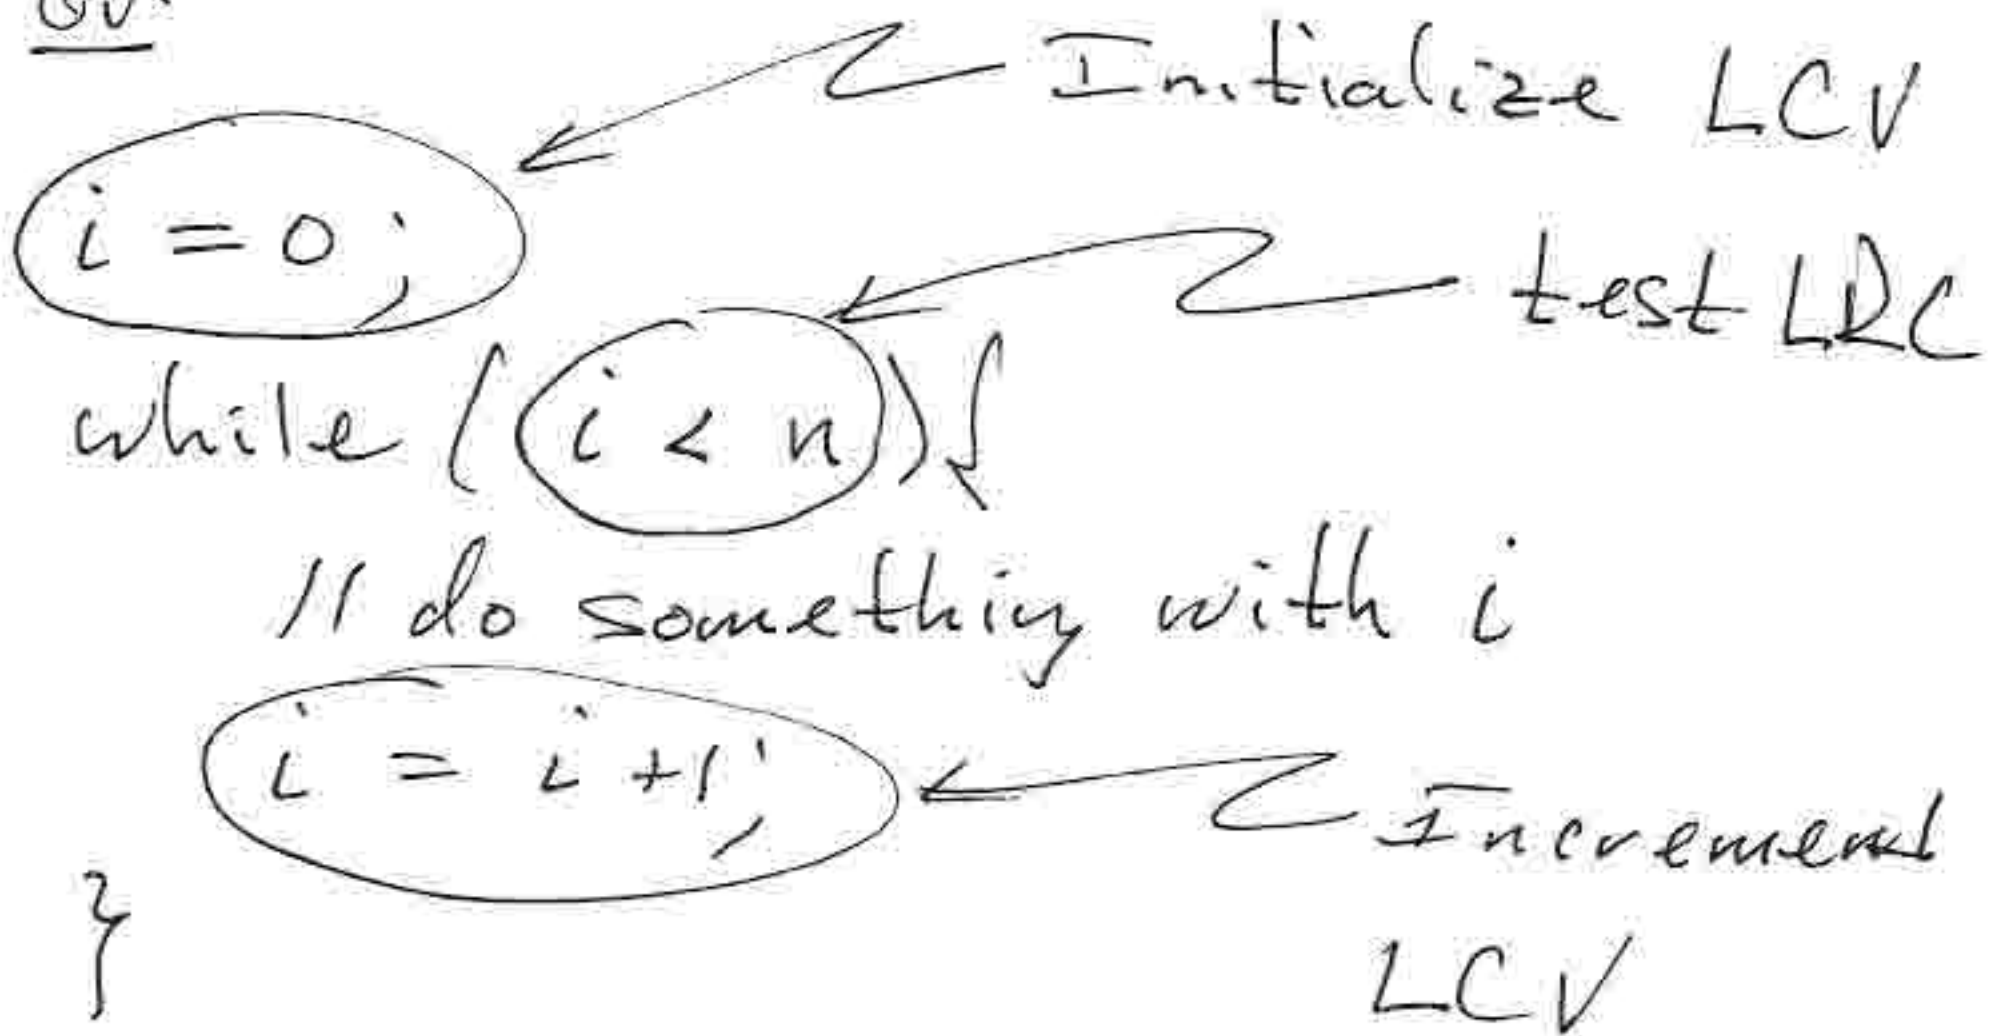 or
Initialize LCV
i = 0;
test LRC
while (i < n) {
// do something with i
i = i + 1;
Increment
LCV
}